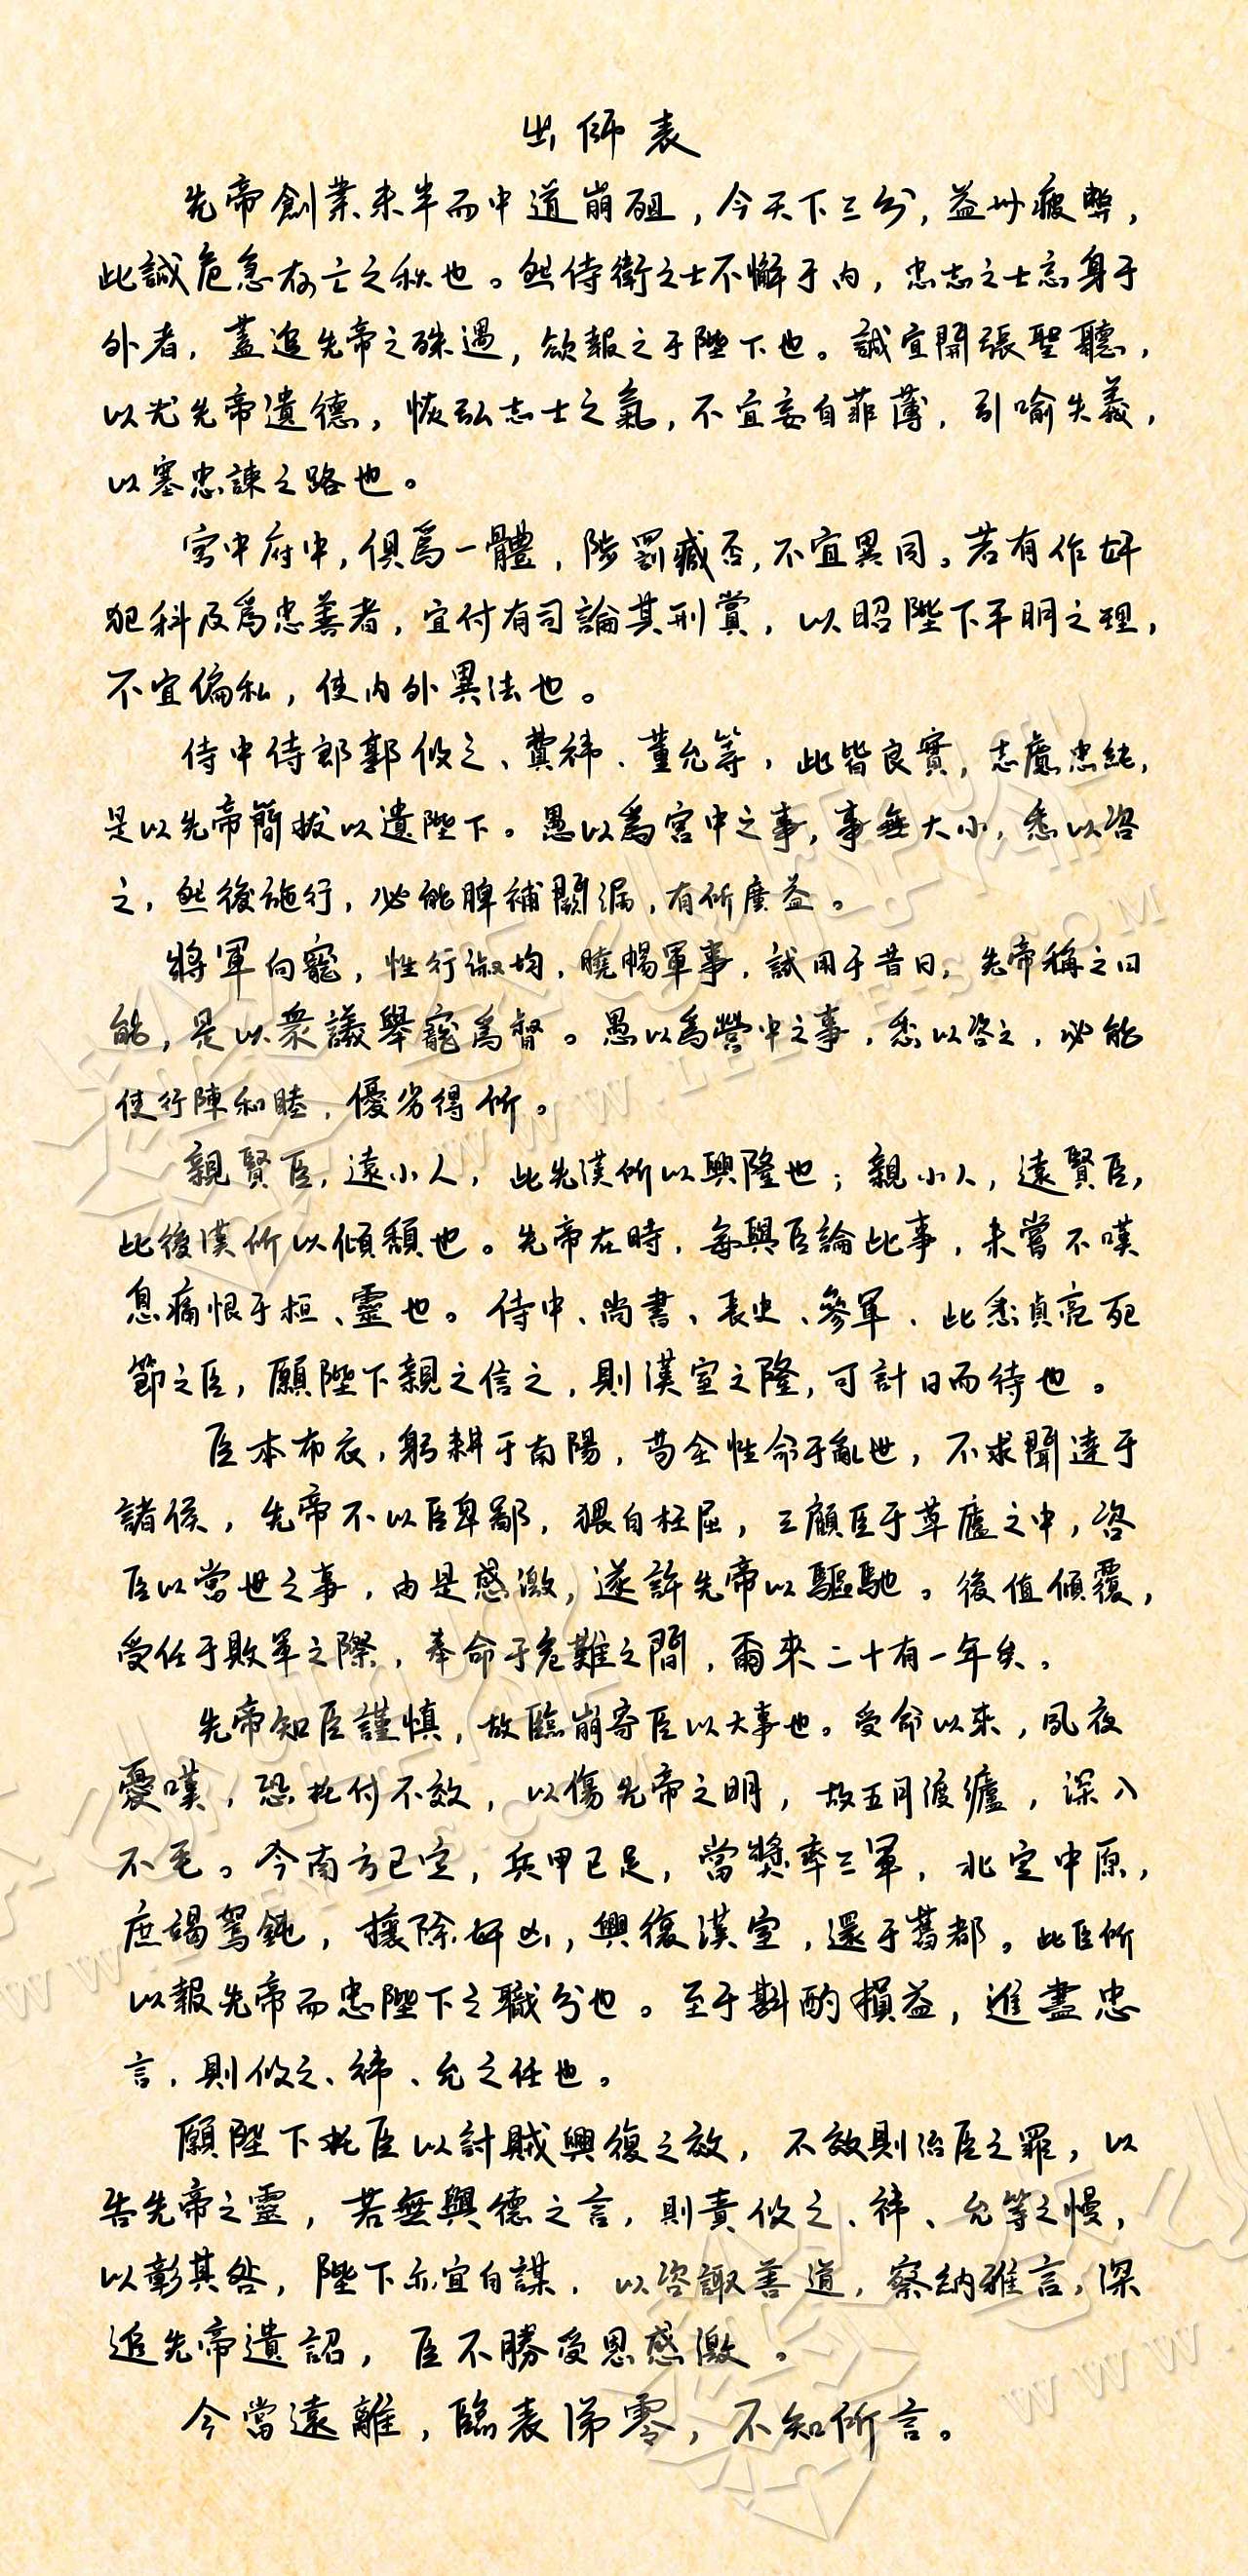 出師表
先帝創業未半而中道崩殂，今天下三分，益州疲弊，
此誠危急存亡之秋也。然侍衛之士不懈于内，忠志之士忘身于
外者，蓋追先帝之殊遇，欲報之于陛下也。誠宜開張聖聽，
以光先帝遺德，恢弘志士之氣，不宜妄自菲薄，引喻失義，
以塞忠諫之路也。
宫中府中，俱爲一體，陟罰臧否，不宜異同。若有作奸
犯科及爲忠善者，宜付有司論其刑賞，以昭陛下平明之理，
不宜偏私，使内外異法也。
侍中侍郎郭攸之、費禕、董允等，此皆良實，志慮忠純，
是以先帝簡拔以遺陛下。愚以爲宫中之事，事無大小，悉以咨
之，然後施行，必能裨補闕漏，有所廣益。
將軍向寵，性行淑均，曉暢軍事，試用于昔日，先帝稱之曰
能，是以衆議舉寵爲督。愚以爲營中之事，悉以咨之，必能
使行陣和睦，優劣得所。
親賢臣，遠小人，此先漢所以興隆也；親小人，遠賢臣，
此後漢所以傾頹也。先帝在時，每與臣論此事，未嘗不嘆
息痛恨于桓、靈也。侍中、尚書、長史、參軍、此悉貞亮死
節之臣，願陛下親之信之，則漢室之隆，可計日而待也。
臣本布衣，躬耕于南陽，苟全性命于亂世，不求聞達于
諸侯，先帝不以臣卑鄙，猥自枉屈，三顧臣于草廬之中，咨
臣以當世之事，由是感激，遂許先帝以驅馳。後值傾覆，
受任于敗軍之際，奉命于危難之間，爾來二十有一年矣。
先帝知臣謹慎，故臨崩寄臣以大事也。受命以來，夙夜
憂嘆，恐托付不效，以傷先帝之明，故五月渡瀘，深入
不毛。今南方已定，兵甲已足，當獎率三軍，北定中原，
庶竭駑鈍，攘除奸凶，興復漢室，還于舊都。此臣所
以報先帝而忠陛下之職分也。至于斟酌損益，進盡忠
言，則攸之、禕、允之任也。
願陛下托臣以討賊興復之效，不效則治臣之罪，以
告先帝之靈，若無興德之言，則責攸之、禕、允等之慢，
以彰其咎，陛下亦宜自謀，以咨諏善道，察納雅言，深
追先帝遺詔，臣不勝受恩感激。
今當遠離，臨表涕零，不知所言。